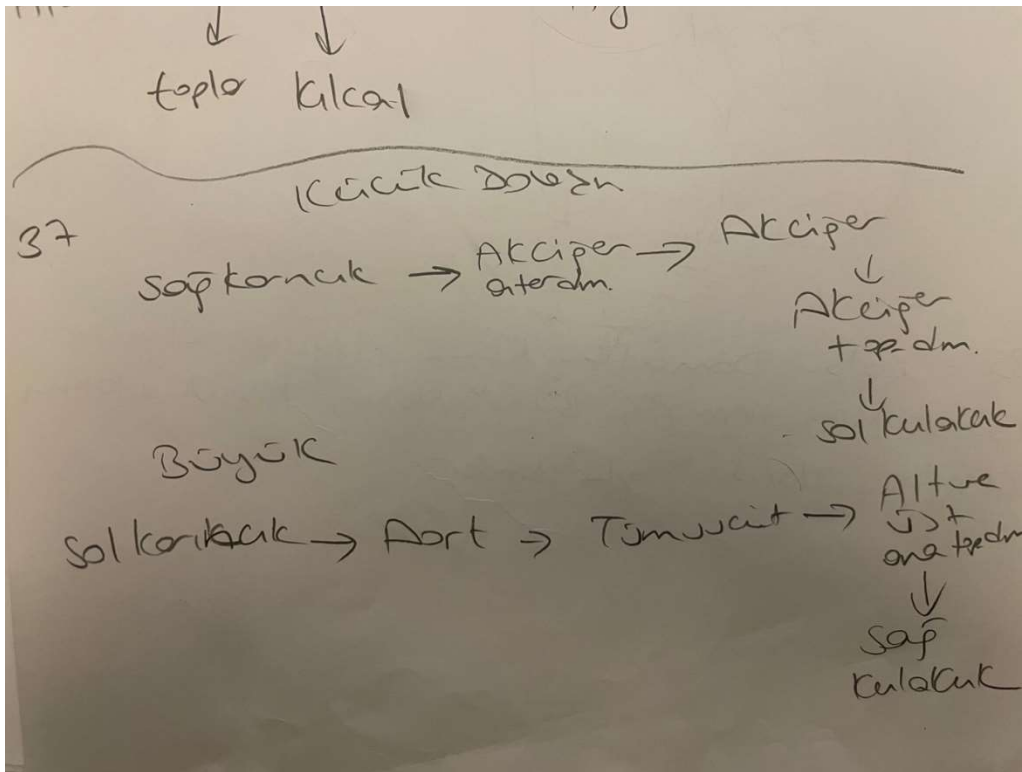 ↓ ↓
toplar Kılcal
Küçük Dolaşım
37
Sağ karıncık → Akciğer atardm. → Akciğer
↓
Akciğer
top. dm.
↓
sol kulakcık
Büyük
Sol karıncık → Aort → Tüm vücüt → Alt ve
üst
ana top dm
↓
Sağ
kulakcık